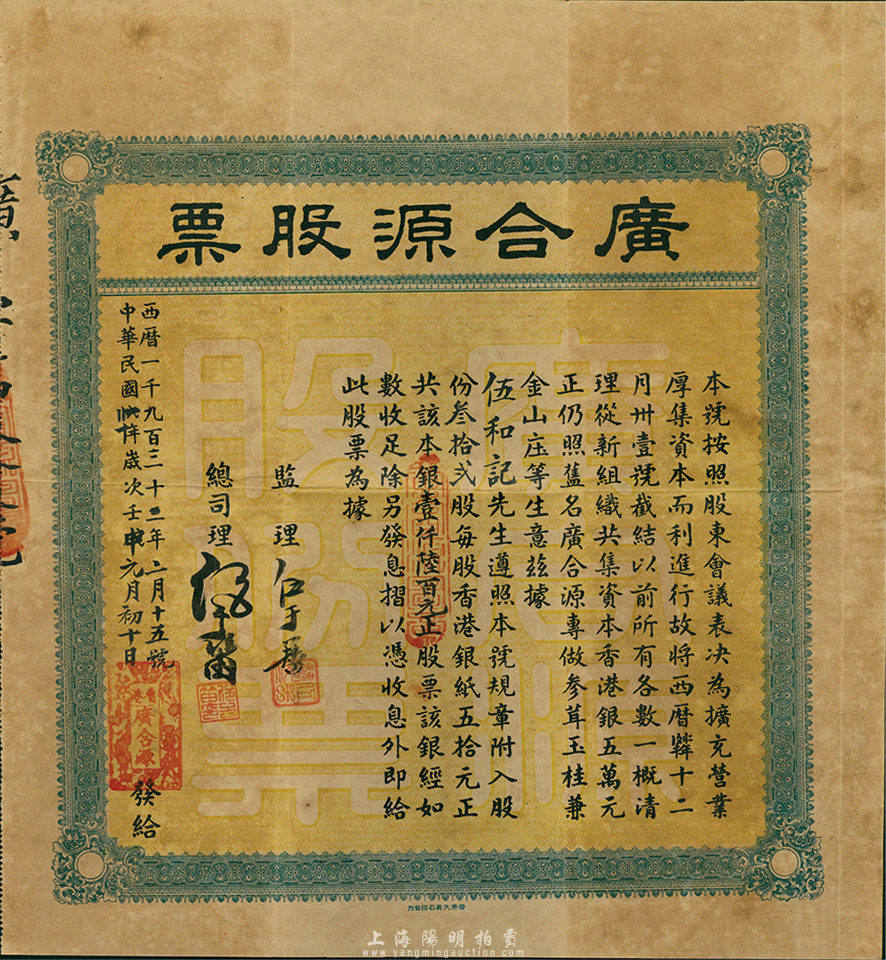 廣合源股票
本號按照股東會議表决為擴充營業
厚集資本而利進行故將西曆 十二
月卅壹號截結以前所有各數一概清
理從新組織共集資本香港銀五萬元
正仍照舊名廣合源專做參茸玉桂兼
金山庄等生意茲據
伍和記先生遵照本號規章附入股
份叁拾弍股每股香港銀紙五拾元正
共該本銀壹仟陸百元正股票該銀經如
數收足除另發息摺以憑收息外即給
此股票為據
監理
總司理
西曆一千九百三十三年二月十五號
中華民國 歲次壬 元月初十日
香港
廣合源
發給
上海陽明拍賣
www.yangmingauction.com